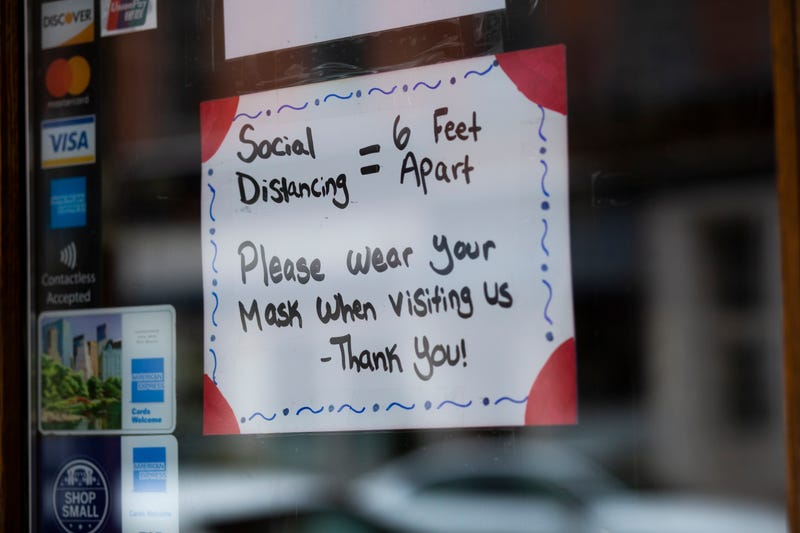 DISCOVER
UnionPay
mastercard
VISA
Contactless
Accepted
AMERICAN
EXPRESS
Cards
Welcome
SHOP
SMALL
AMERICAN
EXPRESS
Cards Welcome
Social = 6 Feet
Distancing Apart
Please wear your
Mask when visiting us
-Thank You!